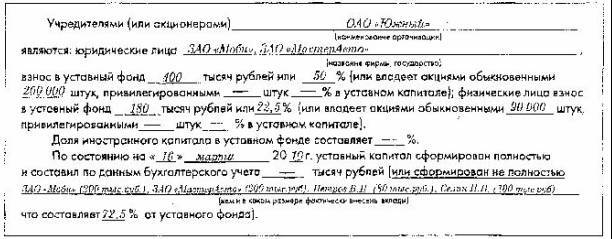 Учредителями (или акционерами) ОАО «Южный»
(наименование организации)
являются: юридические лица ЗАО «Моби», ЗАО «МастерАвто»
(название фирмы, государство)
взнос в уставный фонд 400 тысяч рублей или 50 % (или владеет акциями обыкновенными
200 000 штук, привилегированными — штук — % в уставном капитале); физические лица взнос
в уставный фонд 180 тысяч рублей или 22,5 % (или владеет акциями обыкновенными 90 000 штук,
привилегированными — штук — % в уставном капитале).
Доля иностранного капитала в уставном фонде составляет — %.
По состоянию на « 16 » марта 20 10 г. уставный капитал сформирован полностью
и составил по данным бухгалтерского учета — тысяч рублей (или сформирован не полностью
ЗАО «Моби» (200 тыс.руб.), ЗАО «МастерАвто» (200 тыс.руб), Петров В.И. (80 тыс.руб.), (100 тыс.руб)
(кем и в каком размере фактически внесены вклады)
что составляет 72,5 % от уставного фонда).